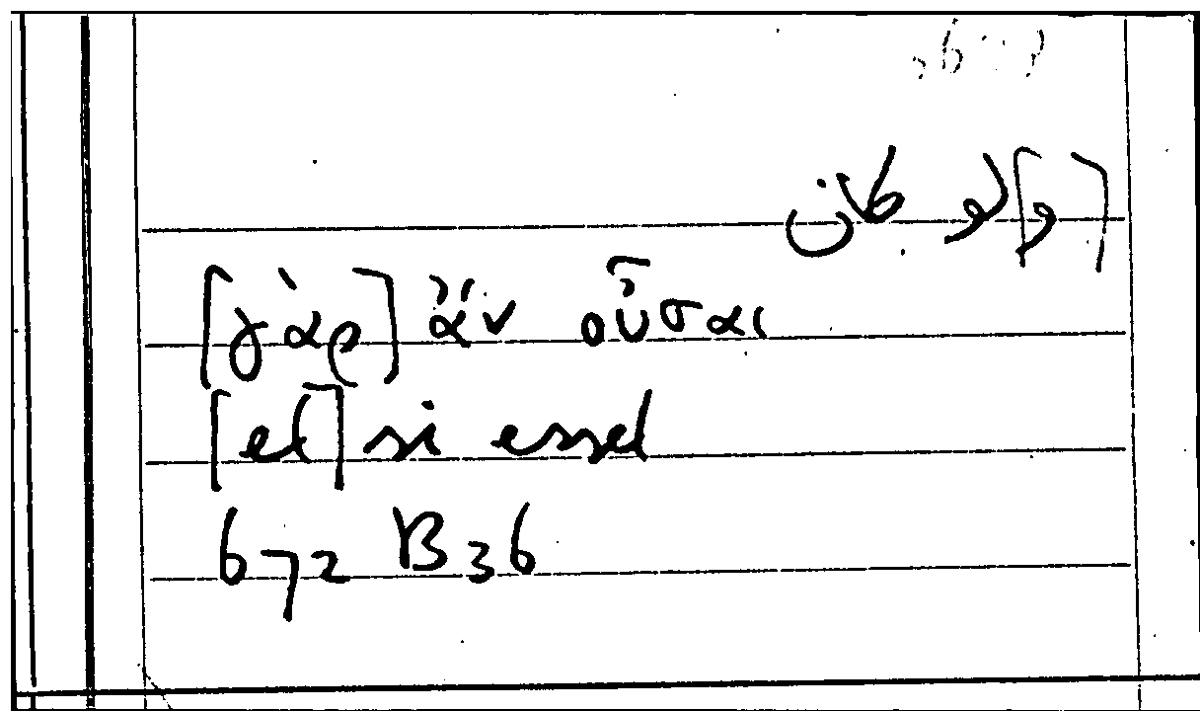 [و] لو كان
[γὰρ] ἂν οὖσαι
[et] si esset
672 B 36